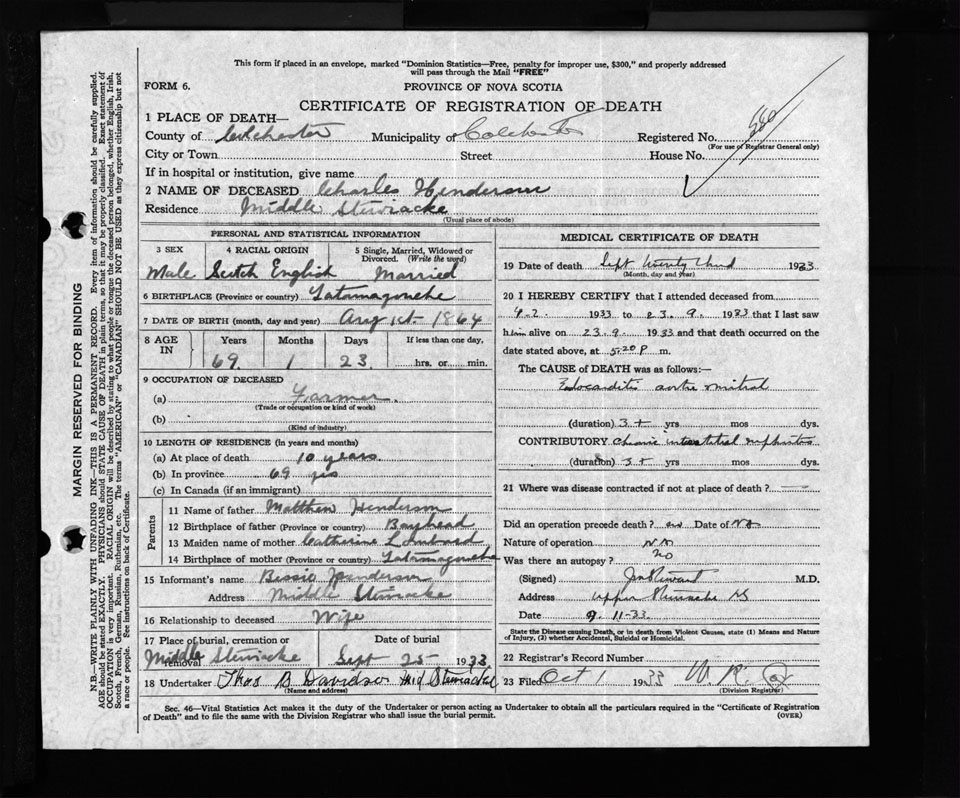 This form if placed in an envelope, marked "Dominion Statistics—Free, penalty for improper use, $300," and properly addressed
will pass through the Mail "FREE"
FORM 6.
PROVINCE OF NOVA SCOTIA
CERTIFICATE OF REGISTRATION OF DEATH
1 PLACE OF DEATH—
County of Colchester Municipality of Colchester Registered No.
(For use of Registrar General only)
City or Town Street House No.
If in hospital or institution, give name
2 NAME OF DECEASED Charles Henderson
Residence Middle Stewiacke
(Usual place of abode)
PERSONAL AND STATISTICAL INFORMATION
3 SEX 4 RACIAL ORIGIN 5 Single, Married, Widowed or
Divorced. (Write the word)
Male Scotch English Married
6 BIRTHPLACE (Province or country) Tatamagouche
7 DATE OF BIRTH (month, day and year) Aug 1st. 1864
8 AGE IN Years Months Days If less than one day,
69 1 23 hrs. or min.
9 OCCUPATION OF DECEASED
(a) Farmer.
(Trade or occupation or kind of work)
(b)
(Kind of industry)
10 LENGTH OF RESIDENCE (in years and months)
(a) At place of death 10 years.
(b) In province 69 yrs
(c) In Canada (if an immigrant)
Parents
11 Name of father Matthew Henderson
12 Birthplace of father (Province or country) Bayhead
13 Maiden name of mother Catherine Lombard
14 Birthplace of mother (Province or country) Tatamagouche
15 Informant's name Bessie Henderson
Address Middle Stewiacke
16 Relationship to deceased Wife
17 Place of burial, cremation or removal Date of burial
Middle Stewiacke Sept 25 1933
18 Undertaker Thos B Davidson Mid Stewiacke
(Name and address)
MEDICAL CERTIFICATE OF DEATH
19 Date of death Sept twenty third 1933
(Month, day and year)
20 I HEREBY CERTIFY that I attended deceased from
9-2. 1933 to 23. 9. 1933 that I last saw
him alive on 23.9. 1933 and that death occurred on
date stated above, at 5.20 P m.
The CAUSE of DEATH was as follows:—
Edocarditis aortic mitral
(duration) 3+ yrs mos dys.
CONTRIBUTORY Chronic interstitial nephritis
(duration) 3+ yrs mos dys.
21 Where was disease contracted if not at place of death? —
Did an operation precede death? no Date of NA
Nature of operation NA
Was there an autopsy? no
(Signed) M.D.
Address Upper Stewiacke NS
Date 9.11-33.
State the Disease causing Death, or in death from Violent Causes, state (1) Means and Nature
of Injury, (2) whether Accidental, Suicidal or Homicidal.
22 Registrar's Record Number
23 Filed Oct 1 1933 W. R.
(Division Registrar)
Sec. 46—Vital Statistics Act makes it the duty of the Undertaker or person acting as Undertaker to obtain all the particulars required in the "Certificate of Registration
of Death" and to file the same with the Division Registrar who shall issue the burial permit. (OVER)
MARGIN RESERVED FOR BINDING
N.B.—WRITE PLAINLY WITH UNFADING INK—THIS IS A PERMANENT RECORD. Every item of information should be carefully supplied.
AGE should be stated EXACTLY. PHYSICIANS should STATE CAUSE OF DEATH in plain terms, so that it may be properly classified. Exact statement of
OCCUPATION is very important. RACIAL ORIGIN will be described by stating to what people or tongue the deceased person belonged, whether English, Irish,
Scotch, French, German, Russian, Ruthenian, etc. The terms "AMERICAN" or "CANADIAN" SHOULD NOT BE USED as they express citizenship but not
a race or people. See instructions on back of Certificate.